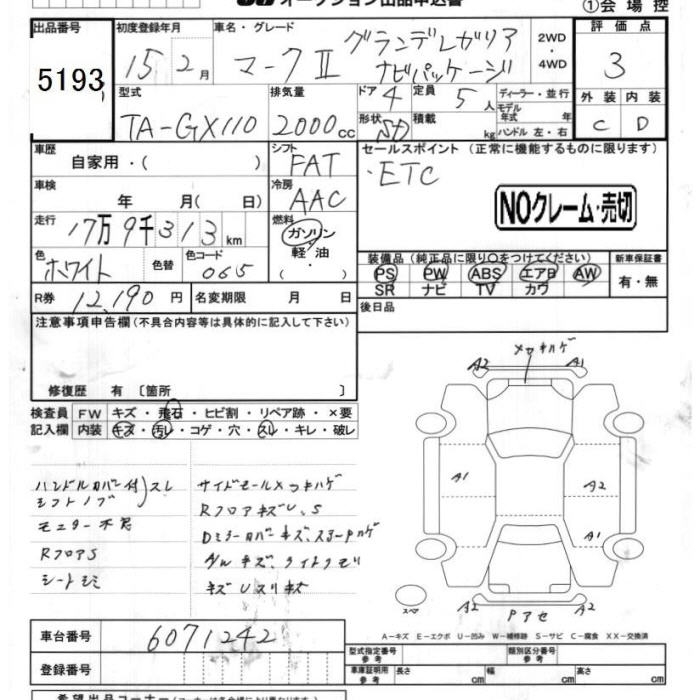 オークション出品申込書
①会場控
出品番号 初度登録年月 車名・グレード 評価点
5193 15 2月 マークⅡ グランデレガリア ナビパッケージ 2WD・4WD 3
型式 排気量 ドア 4 定員 5人 ディーラー・並行 外装 内装
TA-GX110 2000cc 形状 SD 積載 kg モデル年式 年 ハンドル 左・右 C D
車歴 自家用・( ) シフト FAT セールスポイント (正常に機能するものに限ります)
車検 年 月( 日) 冷房 AAC ・ETC
NOクレーム・売切
走行 17万9千313km 燃料 ガソリン・軽油・( )
色 ホワイト 色替 色コード 065 装備品(純正品に限り○をつけてください) 新車保証書
PS PW ABS エアB AW 有・無
SR ナビ TV カワ
R券 12,190円 名変期限 月 日 後日品
注意事項申告欄(不具合内容等は具体的に記入して下さい)
修復歴 有 〔箇所 〕
検査員記入欄 FW キズ・飛石・ヒビ割・リペア跡・×要
内装 キズ・汚レ・コゲ・穴・スレ・キレ・破レ
メッキハゲ
A2 A1
ハンドルカバー付 スレ サイドモールメッキハゲ
シフトノブ RフロアキズU、S
A1 A2
モニター不良
RフロアS A/Wキズ、ライトクモリ
A1
シートシミ キズUスリキズ
スペア A2 Pアセ A2
A-キズ E-エクボ U-凹み W-補修跡 S-サビ C-腐食 XX-交換済
車台番号 6071242
型式指定番号 参考 類別区分番号 参考
登録番号
車庫証明用 参考 長さ cm 幅 cm 高さ cm
希望出品コーナー